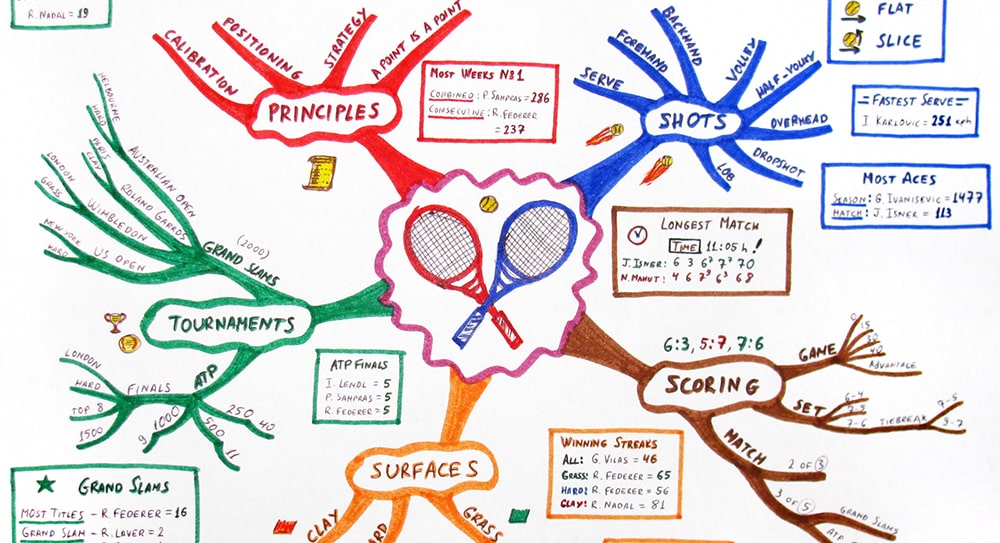 R. NADAL = 19
CALIBRATION
POSITIONING
STRATEGY
A POINT IS A POINT
PRINCIPLES
MOST WEEKS №1
COMBINED: P. SAMPRAS = 286
CONSECUTIVE: R. FEDERER
= 237
SERVE
FOREHAND
BACKHAND
VOLLEY
HALF-VOLLEY
OVERHEAD
DROPSHOT
LOB
SHOTS
FLAT
SLICE
FASTEST SERVE
I. KARLOVIC = 251 kph
MOST ACES
SEASON: G. IVANISEVIC = 1477
MATCH: J. ISNER = 113
LONGEST MATCH
TIME 11:05 h!
J. ISNER: 6 3 6⁷ 7⁷ 70
N. MAHUT: 4 6 7⁹ 6³ 68
MELBOURNE
HARD
AUSTRALIAN OPEN
PARIS
CLAY
ROLAND GARROS
LONDON
GRASS
WIMBLEDON
NEW YORK
HARD
US OPEN
GRAND SLAMS
(2000)
TOURNAMENTS
ATP
FINALS
LONDON
HARD
TOP 8
1500
1000
9
500
11
250
40
ATP FINALS
I. LENDL = 5
P. SAMPRAS = 5
R. FEDERER = 5
6:3, 5:7, 7:6
SCORING
GAME
0
15
30
40
ADVANTAGE
SET
6-4
7-5
7-6
TIEBREAK
7-5
9-7
MATCH
2 OF 3
3 OF 5
GRAND SLAMS
SURFACES
CLAY
GRASS
WINNING STREAKS
ALL: G. VILAS = 46
GRASS: R. FEDERER = 65
HARD: R. FEDERER = 56
CLAY: R. NADAL = 81
GRAND SLAMS
MOST TITLES - R. FEDERER = 16
GRAND SLAM - R. LAVER = 2